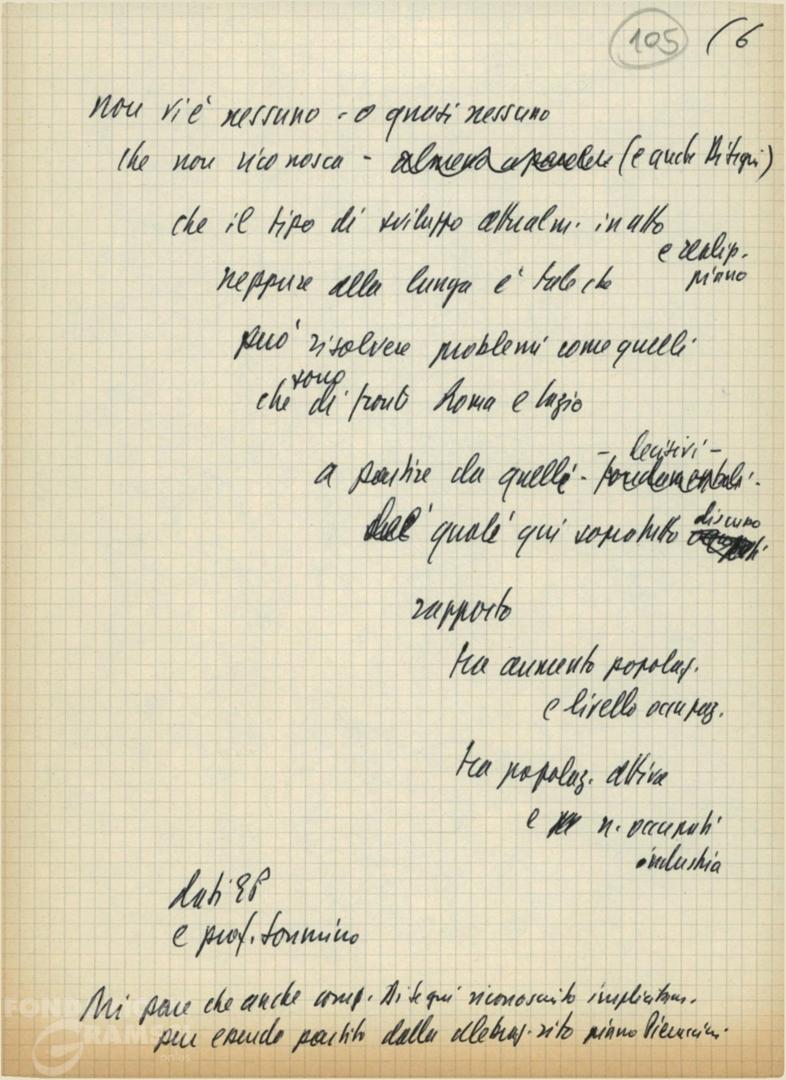 105 (6
non vi è nessuno - o quasi nessuno
che non riconosca - almeno a parole (e anche Ditegui)
che il tipo di sviluppo attualm. in atto
e realip.
neppure alla lunga è tale che piano
può risolvere problemi come quelli
sono
che di fronti Roma e Lazio
- decisivi -
a partire da quelli - fondamentali -
quali qui sopratutto discuno
rapporto
tra aumento popolaz.
e livello occupaz.
tra popolaz. attiva
e n. occupati
industria
dati EP
e prof.
Mi pare che anche comp. Ditegui riconosciuto implicitam.
pur essendo partito dalla piano
FONDAZIONE
GRAMSCI